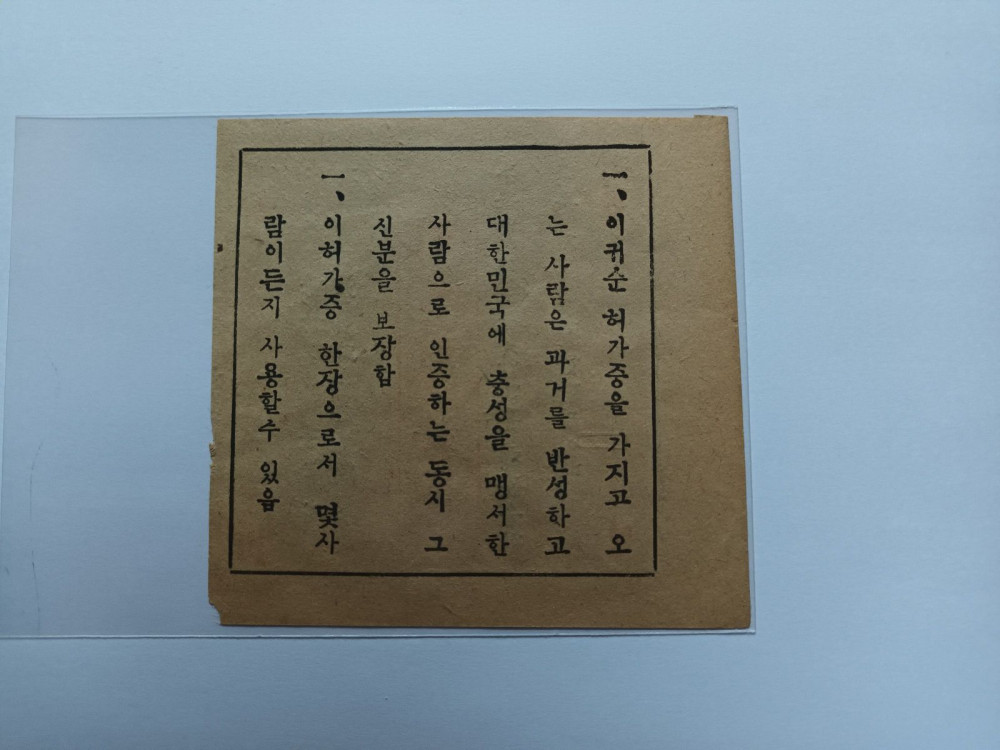 一、이귀순 허가증을 가지고 오
는 사람은 과거를 반성하고
대한민국에 충성을 맹서한
사람으로 인증하는 동시 그
신분을 보장합
一、이허가증 한장으로서 몇사
람이든지 사용할수 있음